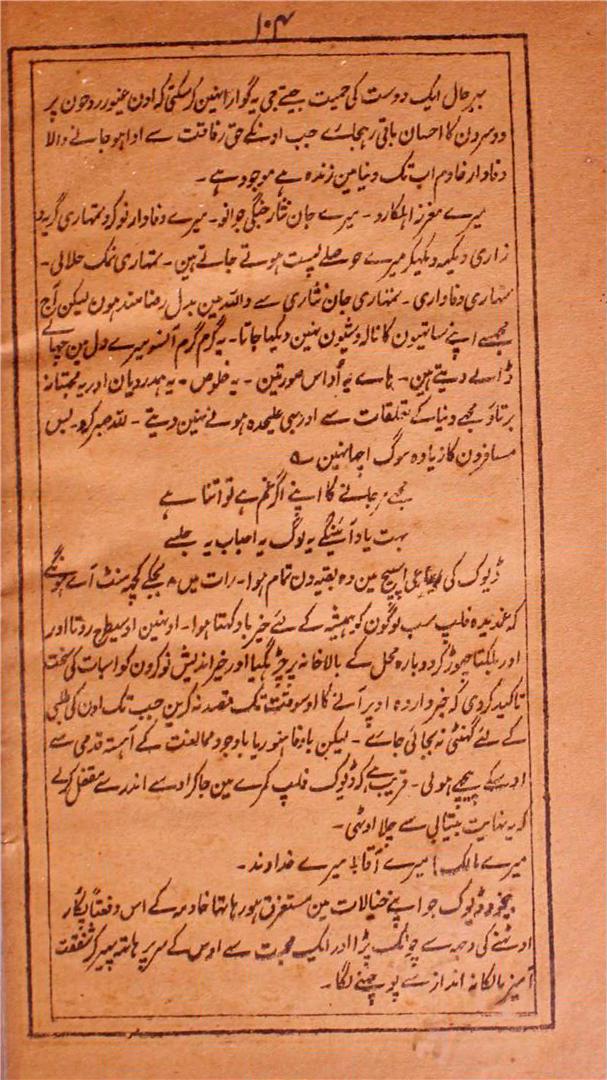 ۱۰۴
بہر حال ایک دوست کی حمیت جیتے جی یہ گوارا نہین کر سکتی کہ اون غیور روحون پر
دوسرون کا احسان باقی رہجائے جب اونکے حق رفاقت سے ادا ہو جانے والا
وفادار خادم اب تک دنیا مین زندہ ہے موجود ہے۔
میرے معزز اہلکارو۔ میرے جان نثار جنگی جوانو۔ میرے وفادار نوکرو تمہاری گریہ و
زاری دیکھ دیکھکر میرے حوصلے پست ہوتے جاتے ہین۔ تمہاری نمک حلالی۔
تمہاری وفاداری۔ تمہاری جان نثاری سے واللہ مین بدل رضامند ہون لیکن آج
مجھسے اپنے ساتھیون کا نالہ و شیون نہین دیکھا جاتا۔ یہ گرم گرم آنسو میرے دل مین چھالے
ڈالے دیتے ہین۔ ہائے یہ اُداس صورتین۔ یہ خلوص۔ یہ ہمدردیان اور یہ محبتانہ
برتاؤ مجھے دنیا کے تعلقات سے اور بھی علیحدہ ہونے نہین دیتے۔ للہ صبر کرو۔ بس
مسافرون کا زیادہ سوگ اچھا نہین ؎
مجھے مر جانے کا اپنے اگر غم ہے تو اتنا ہے
بہت یاد آئینگے یہ لوگ یہ احباب یہ جلسے
ڈیوک کی اسپیچ مین وہ بقیہ دن تمام ہوا۔ رات مین ۸ بجکے کچھ منٹ آئے ہونگے
کہ غمدیدہ فلپ سب لوگون کو ہمیشہ کے لئے خیرباد کہتا ہوا۔ اونہین اوسیطرح روتا اور
اور بلکتا چھوڑ کر دوبارہ محل کے بالاخانہ پر چڑھ گیا اور خیر اندیش نوکرون کو اس بات کی سخت
تاکید کر دی کہ خبردار وہ اوپر آنے کا اوسوقت تک قصد نہ کرین جب تک اون کی طلبی
کے لئے گھنٹی نہ بجائی جائے۔ لیکن باوفا ہنوریا باوجود ممانعت کے آہستہ قدمی سے
اوسکے پیچھے ہولی۔ قریب ہے کہ ڈیوک فلپ کمرے مین جا کر اوسے اندر سے مقفل کرلے
کہ یہ نہایت بیتابی سے چلا اوٹھی۔
میرے مالک! میرے آقا! میرے خداوند۔
بیخود ڈیوک جو اپنے خیالات مین مستغرق ہو رہا تھا خادمہ کے اس دفعتاً پکار
اوٹھنے کی وجہ سے چونک پڑا اور ایک محبت سے اوس کے سر پر ہاتھ پھیر کر شفقت
آمیز مالکانہ انداز سے پوچھنے لگا۔